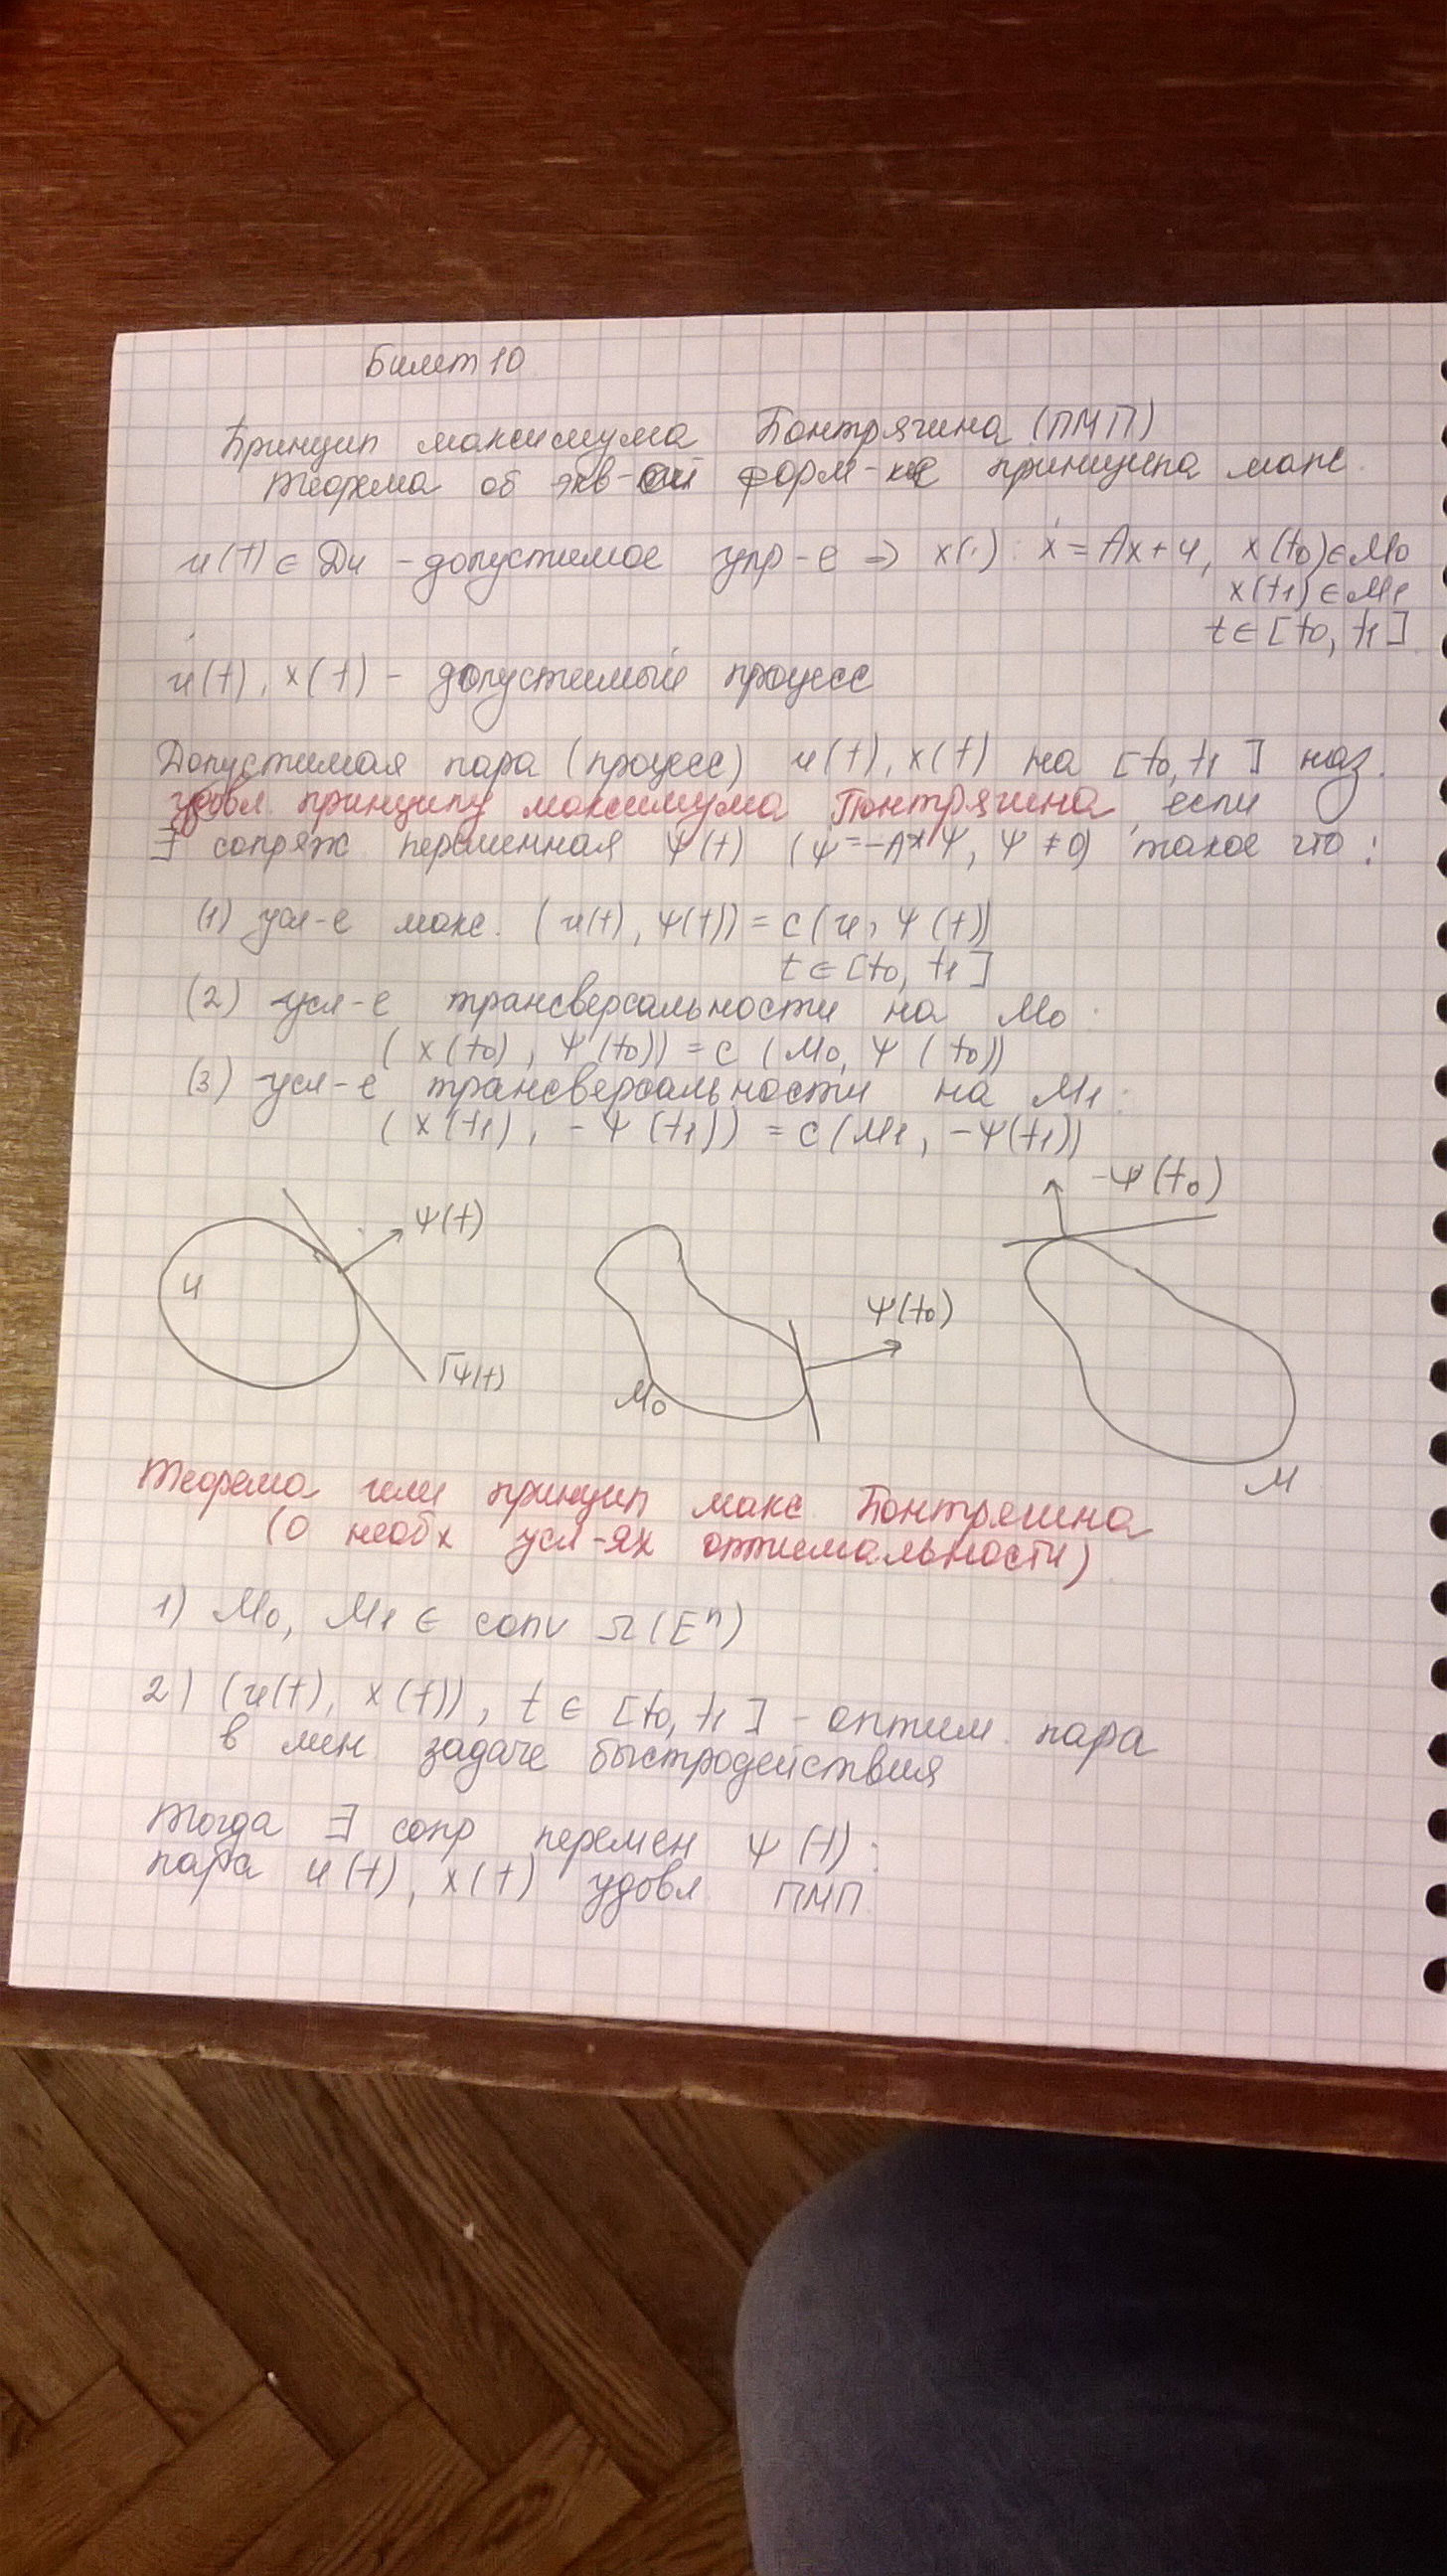 Билет 10
Принцип максимума Понтрягина (ПМП)
Теорема об экв-ой форм-ке принципа макс.
u(t) ∈ Du - допустимое упр-е ⇒ x(·): ẋ = Ax + u, x(t0) ∈ M0
x(t1) ∈ M1
t ∈ [t0, t1]
u(t), x(t) - допустимый процесс
Допустимая пара (процесс) u(t), x(t) на [t0, t1] наз.
удовл. принципу максимума Понтрягина, если
∃ сопряж переменная Ψ(t) (Ψ̇ = -A*Ψ, Ψ ≠ 0) такое что:
(1) усл-е макс. (u(t), Ψ(t)) = c(u, Ψ(t))
t ∈ [t0, t1]
(2) усл-е трансверсальности на M0:
(x(t0), Ψ(t0)) = c (M0, Ψ(t0))
(3) усл-е трансверсальности на M1:
(x(t1), -Ψ(t1)) = c(M1, -Ψ(t1))
-Ψ(t0)
Ψ(t)
u
Ψ(t0)
ГΨ(t)
M0
M
Теорема или принцип макс. Понтрягина
(о необх усл-ях оптимальности)
1) M0, M1 ∈ conv Ω(Eⁿ)
2) (u(t), x(t)), t ∈ [t0, t1] - оптим. пара
в лин задаче быстродействия
Тогда ∃ сопр перемен Ψ(t):
пара u(t), x(t) удовл. ПМП